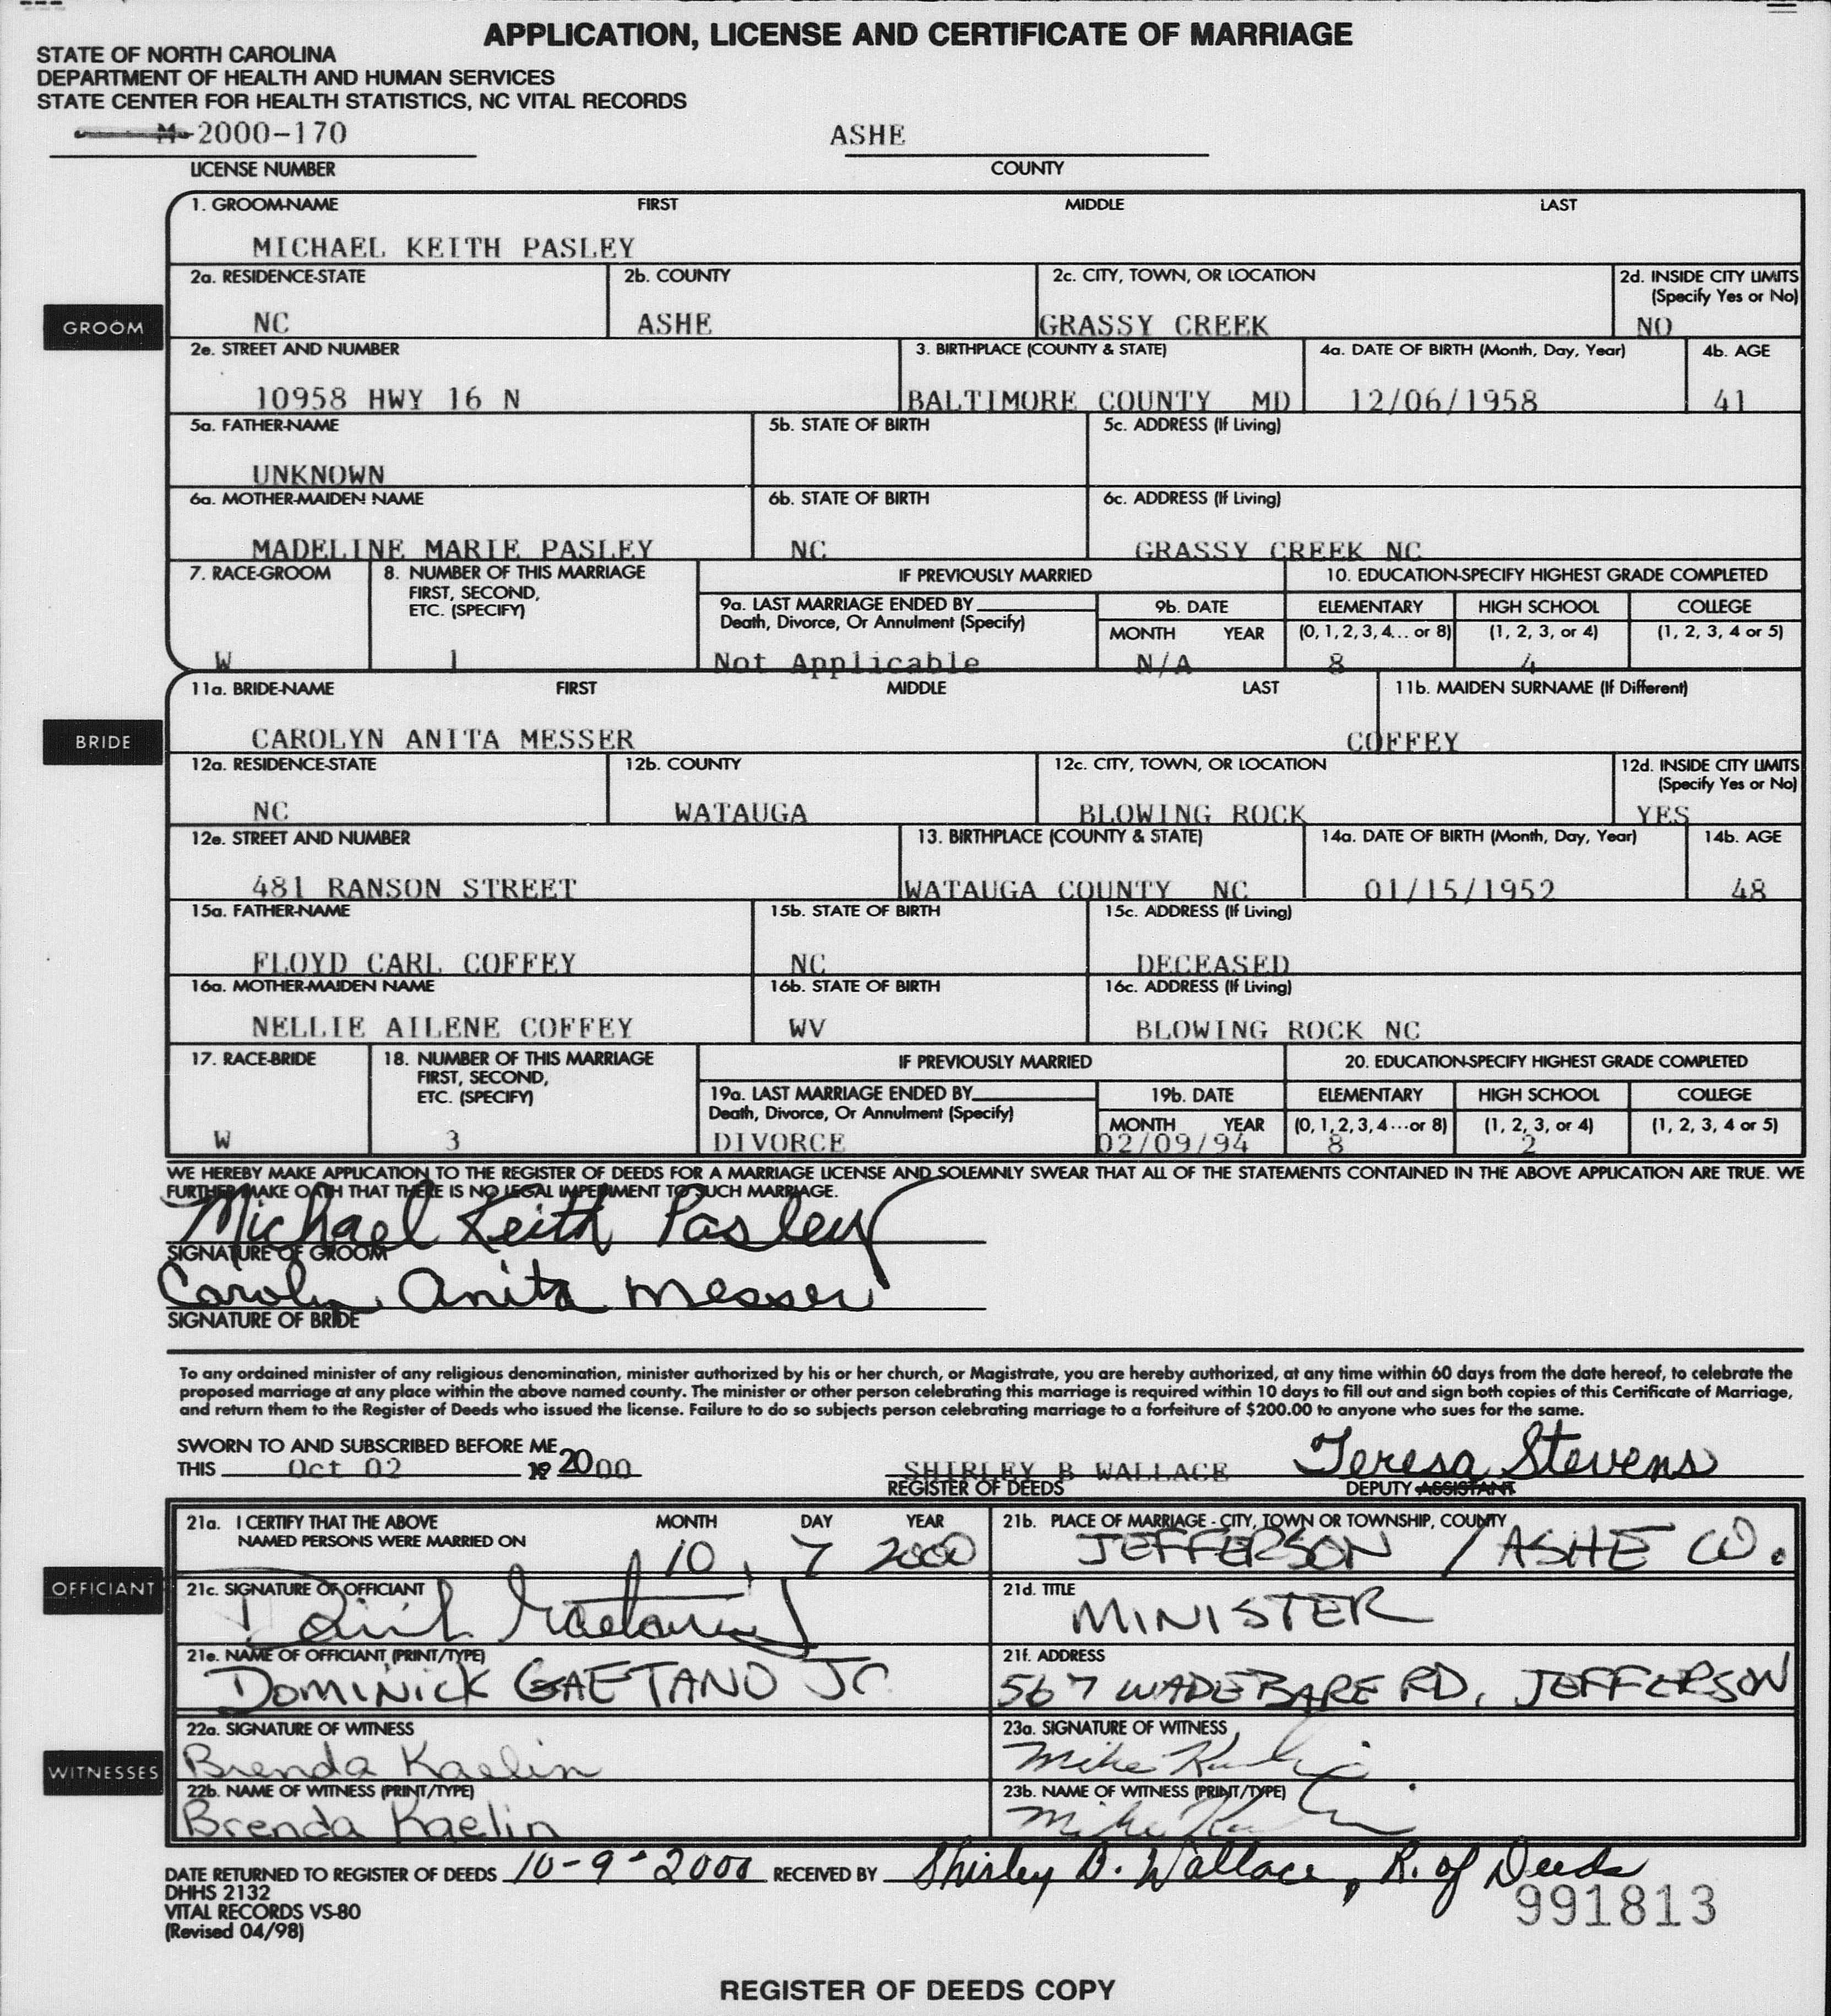 APPLICATION, LICENSE AND CERTIFICATE OF MARRIAGE
STATE OF NORTH CAROLINA
DEPARTMENT OF HEALTH AND HUMAN SERVICES
STATE CENTER FOR HEALTH STATISTICS, NC VITAL RECORDS
M-2000-170 ASHE
LICENSE NUMBER COUNTY
1. GROOM-NAME FIRST MIDDLE LAST
MICHAEL KEITH PASLEY
2a. RESIDENCE-STATE 2b. COUNTY 2c. CITY, TOWN, OR LOCATION 2d. INSIDE CITY LIMITS
(Specify Yes or No)
GROOM
NC ASHE GRASSY CREEK NO
2e. STREET AND NUMBER 3. BIRTHPLACE (COUNTY & STATE) 4a. DATE OF BIRTH (Month, Day, Year) 4b. AGE
10958 HWY 16 N BALTIMORE COUNTY MD 12/06/1958 41
5a. FATHER-NAME 5b. STATE OF BIRTH 5c. ADDRESS (If Living)
UNKNOWN
6a. MOTHER-MAIDEN NAME 6b. STATE OF BIRTH 6c. ADDRESS (If Living)
MADELINE MARIE PASLEY NC GRASSY CREEK NC
7. RACE-GROOM 8. NUMBER OF THIS MARRIAGE IF PREVIOUSLY MARRIED 10. EDUCATION-SPECIFY HIGHEST GRADE COMPLETED
FIRST, SECOND,
ETC. (SPECIFY) 9a. LAST MARRIAGE ENDED BY 9b. DATE ELEMENTARY HIGH SCHOOL COLLEGE
Death, Divorce, Or Annulment (Specify) MONTH YEAR (0, 1, 2, 3, 4... or 8) (1, 2, 3, or 4) (1, 2, 3, 4 or 5)
W 1 Not Applicable N/A 8 4
11a. BRIDE-NAME FIRST MIDDLE LAST 11b. MAIDEN SURNAME (If Different)
BRIDE
CAROLYN ANITA MESSER COFFEY
12a. RESIDENCE-STATE 12b. COUNTY 12c. CITY, TOWN, OR LOCATION 12d. INSIDE CITY LIMITS
(Specify Yes or No)
NC WATAUGA BLOWING ROCK YES
12e. STREET AND NUMBER 13. BIRTHPLACE (COUNTY & STATE) 14a. DATE OF BIRTH (Month, Day, Year) 14b. AGE
481 RANSON STREET WATAUGA COUNTY NC 01/15/1952 48
15a. FATHER-NAME 15b. STATE OF BIRTH 15c. ADDRESS (If Living)
FLOYD CARL COFFEY NC DECEASED
16a. MOTHER-MAIDEN NAME 16b. STATE OF BIRTH 16c. ADDRESS (If Living)
NELLIE AILENE COFFEY WV BLOWING ROCK NC
17. RACE-BRIDE 18. NUMBER OF THIS MARRIAGE IF PREVIOUSLY MARRIED 20. EDUCATION-SPECIFY HIGHEST GRADE COMPLETED
FIRST, SECOND,
ETC. (SPECIFY) 19a. LAST MARRIAGE ENDED BY 19b. DATE ELEMENTARY HIGH SCHOOL COLLEGE
Death, Divorce, Or Annulment (Specify) MONTH YEAR (0, 1, 2, 3, 4...or 8) (1, 2, 3, or 4) (1, 2, 3, 4 or 5)
W 3 DIVORCE 02/09/94 8 2
WE HEREBY MAKE APPLICATION TO THE REGISTER OF DEEDS FOR A MARRIAGE LICENSE AND SOLEMNLY SWEAR THAT ALL OF THE STATEMENTS CONTAINED IN THE ABOVE APPLICATION ARE TRUE. WE
FURTHER MAKE OATH THAT THERE IS NO LEGAL IMPEDIMENT TO SUCH MARRIAGE.
Michael Keith Pasley
SIGNATURE OF GROOM
Carolyn Anita Messer
SIGNATURE OF BRIDE
To any ordained minister of any religious denomination, minister authorized by his or her church, or Magistrate, you are hereby authorized, at any time within 60 days from the date hereof, to celebrate the
proposed marriage at any place within the above named county. The minister or other person celebrating this marriage is required within 10 days to fill out and sign both copies of this Certificate of Marriage,
and return them to the Register of Deeds who issued the license. Failure to do so subjects person celebrating marriage to a forfeiture of $200.00 to anyone who sues for the same.
SWORN TO AND SUBSCRIBED BEFORE ME
THIS Oct 02 19 2000 SHIRLEY B WALLACE Teresa Stevens
REGISTER OF DEEDS DEPUTY ASSISTANT
21a. I CERTIFY THAT THE ABOVE MONTH DAY YEAR 21b. PLACE OF MARRIAGE - CITY, TOWN OR TOWNSHIP, COUNTY
NAMED PERSONS WERE MARRIED ON 10, 7 2000 JEFFERSON / ASHE CO.
OFFICIANT
21c. SIGNATURE OF OFFICIANT 21d. TITLE
MINISTER
21e. NAME OF OFFICIANT (PRINT/TYPE) 21f. ADDRESS
DOMINICK GAETANO Jr. 567 WADE BARE RD, JEFFERSON
22a. SIGNATURE OF WITNESS 23a. SIGNATURE OF WITNESS
WITNESSES
Brenda Kaelin Mike Kaelin
22b. NAME OF WITNESS (PRINT/TYPE) 23b. NAME OF WITNESS (PRINT/TYPE)
Brenda Kaelin Mike Kaelin
DATE RETURNED TO REGISTER OF DEEDS 10-9-2000 RECEIVED BY Shirley B. Wallace, R. of Deeds
DHHS 2132
VITAL RECORDS VS-80
(Revised 04/98)
991813
REGISTER OF DEEDS COPY